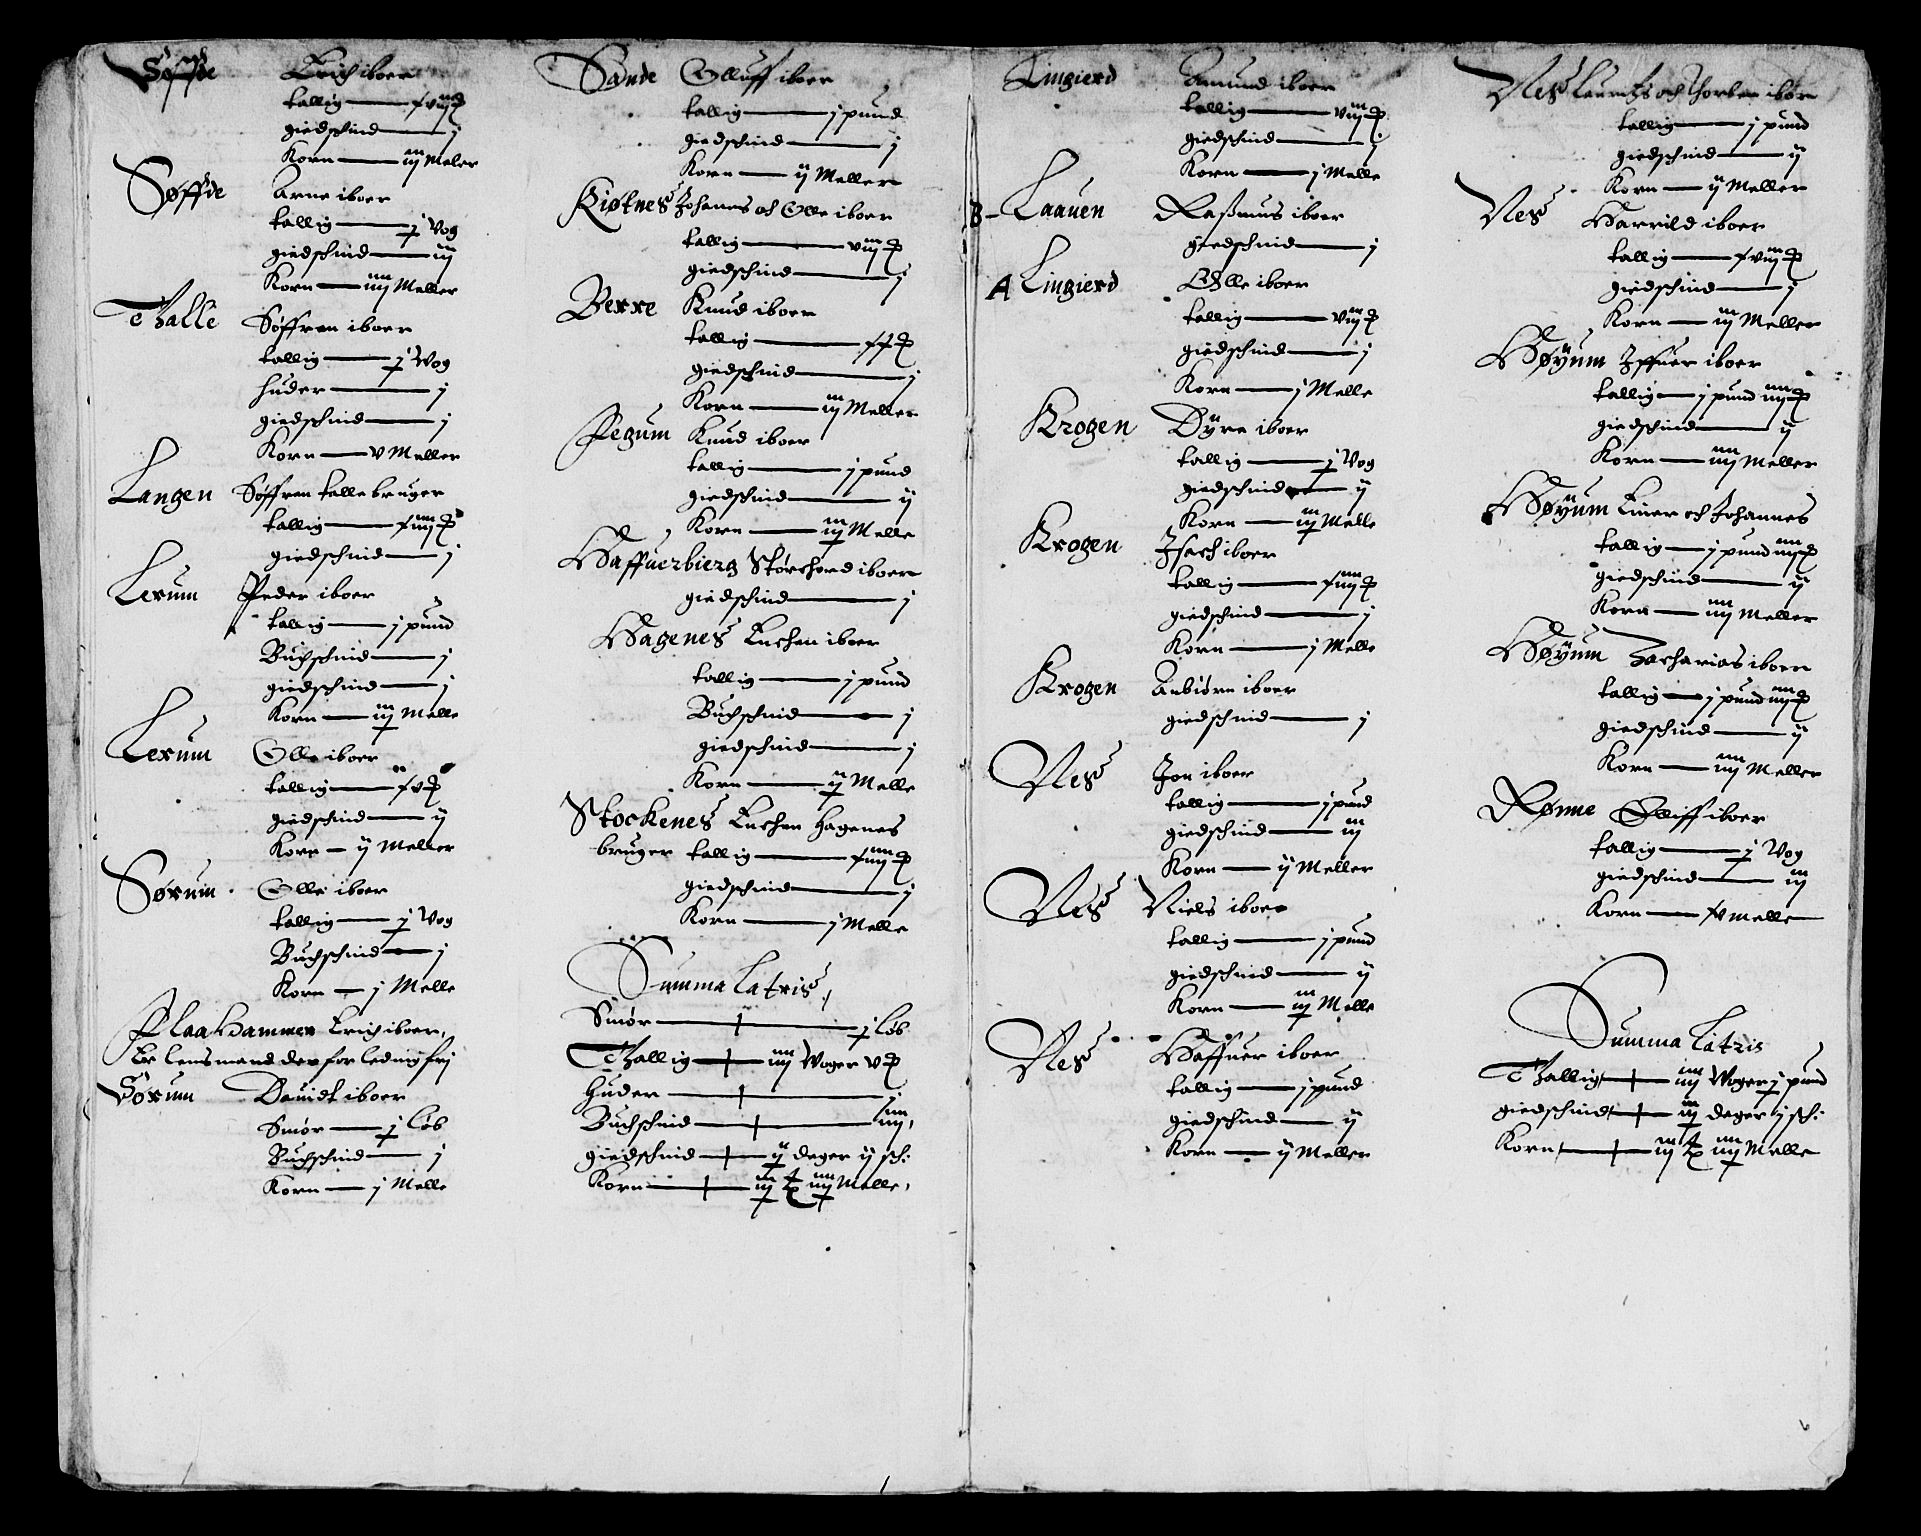 Søffde Erich iboer
tallig — xviij ℔
giedschind — j
Korn — iij Meler
Søffde Arne iboer
tallig — j Vog
giedschind — iij
Korn — iiij Meller
Thalle Søffren iboer
tallig — j Vog
Huder — j
giedschind — j
Korn — v Meller
Langen Søffren talle bruger
tallig — xiiij ℔
giedschind — j
Lerum Peder iboer
tallig — j pund
Buchschind — j
giedschind — j
Korn — iij Melle
Lerum Olle iboer
tallig — xv ℔
giedschind — ij
Korn — ij Meller
Sørum Olle iboer
tallig — j Vog
Buchschind — j
Korn — j Melle
Flaa Hammer Erich iboer,
Er lensmand der for ledig frij
Sørum Dauidt iboer
Smør — j løb
Buchschind — j
Korn — j Melle
Sande Olluff iboer
tallig — j pund
giedschind — j
Korn — ij Meller
Kiøtnes Johanes och Olle iboer
tallig — viij ℔
giedschind — j
Berre Knud iboer
tallig — xx ℔
giedschind — j
Korn — iij Meller
Fegum Knud iboer
tallig — j pund
giedschind — ij
Korn — iij Melle
Haffuerbierg Storchord iboer
giedschind — j
Hagenes Enchen iboer
tallig — j pund
Buchschind — j
giedschind — j
Korn — ij Melle
Stockenes Enchen Hagenes
bruger tallig — xiiij ℔
giedschind — j
Korn — j Melle
Summa Latris
Smør — j løb
Thallig — iiij Woger v ℔
Huder — j
Buchschind — iiij
giedschind — ij deger ij sch:
Korn — iij t iiij Melle,
Lingierd Amund iboer
tallig — viij ℔
giedschind — j
Korn — j Melle
B - Laauen Rasmus iboer
giedschind — j
A Lingierd Olle iboer
tallig — viij ℔
giedschind — j
Korn — j Melle
Krogen Dÿre iboer
tallig — j Vog
giedschind — ij
Korn — iij Melle
Krogen Isach iboer
tallig — xiiij ℔
giedschind — j
Korn — j Melle
Krogen Anbiørn iboer
giedschind — j
Nes Jon iboer
tallig — j pund
giedschind — iij
Korn — ij Meller
Nes Niels iboer
tallig — j pund
giedschind — ij
Korn — iij Melle
Nes Haffuer iboer
tallig — j pund
giedschind — ij
Korn — ij Meller
Nes Lauritz och Thorber ibør
tallig — j pund
giedschind — ij
Korn — ij Meller
Nes Harrild iboer
tallig — xviij ℔
giedschind — j
Korn — iij Meller
Høÿum Iffuer iboer
tallig — j pund iiij ℔
giedschind — ij
Korn — iiij Meller
Høÿum Einer och Johannes
tallig — j pund iiij ℔
giedschind — ij
Korn — iiij Meller
Høÿum Zacharias iboer
tallig — j pund iiij ℔
giedschind — ij
Korn — iiij Meller
Rønne Olliff iboer
tallig — j Vog
giedschind — iij
Korn — xv melle
Summa Latris
Thallig — iiij Woger j pund
giedschind — iij deger j sch:
Korn — iij t iiij Melle